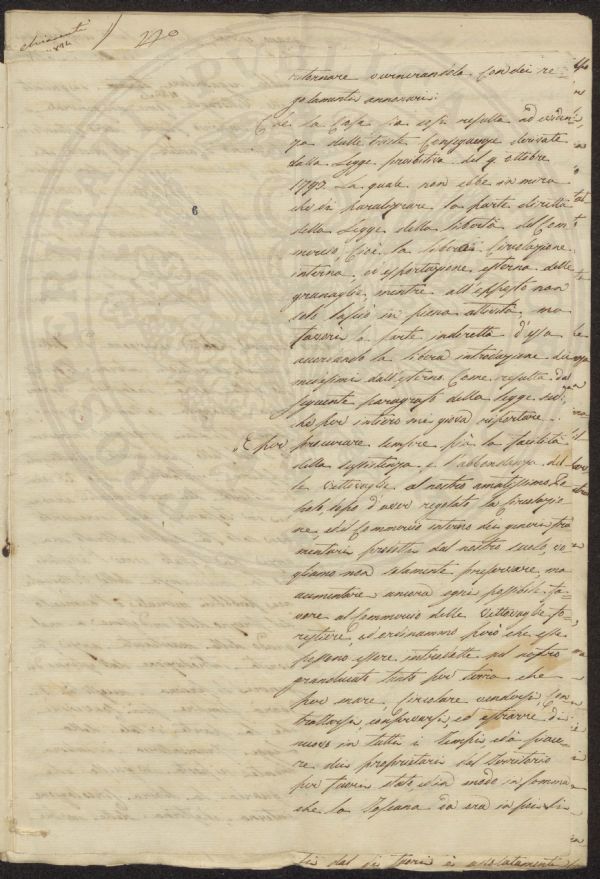 220
ritornare rovinandola con dei re-
golamenti annonarj.
Che la cosa sia così resulta ad eviden-
za dalle triste conseguenze derivate
dalla Legge proibitiva del 9. Ottobre
1792. La quale non ebbe in mira
che di paralizzare la parte diretta
della Legge della libertà del Com-
mercio, cioè la libera circolazione
interna, ed esportazione esterna delle
granaglie, mentre all'opposto non
solo lasciò in piena attività, ma
favorì la parte indiretta d'essa
la libera introduzione dei
medesimi dall'esterno. Come resulta dal
seguente paragrafo della Legge sud.
che per intiero mi giova riportare.
"E per procurare sempre più la facilità
della sussistenza e l'abbondanza del-
le vettovaglie al nostro amatissimo Po-
polo, dopo d'aver regolato la circolazio-
ne, ed il Commercio interno dei generi fru-
mentarj prodotti dal nostro suolo, vo-
gliamo non solamente preservare, ma
aumentare ancora ogni possibil fa-
vore al Commercio delle Vettovaglie fo-
restiere, ed ordiniamo però che esse
possono essere introdotte nel nostro
granducato tanto per terra che
per mare, circolare vendersi, con-
trattarsi, conservarsi, ed estrarre di
nuovo in tutti i tempi, ed a piace-
re dei proprietarj del Territorio
per fuori stato ed in modo in somma
che la Toscana